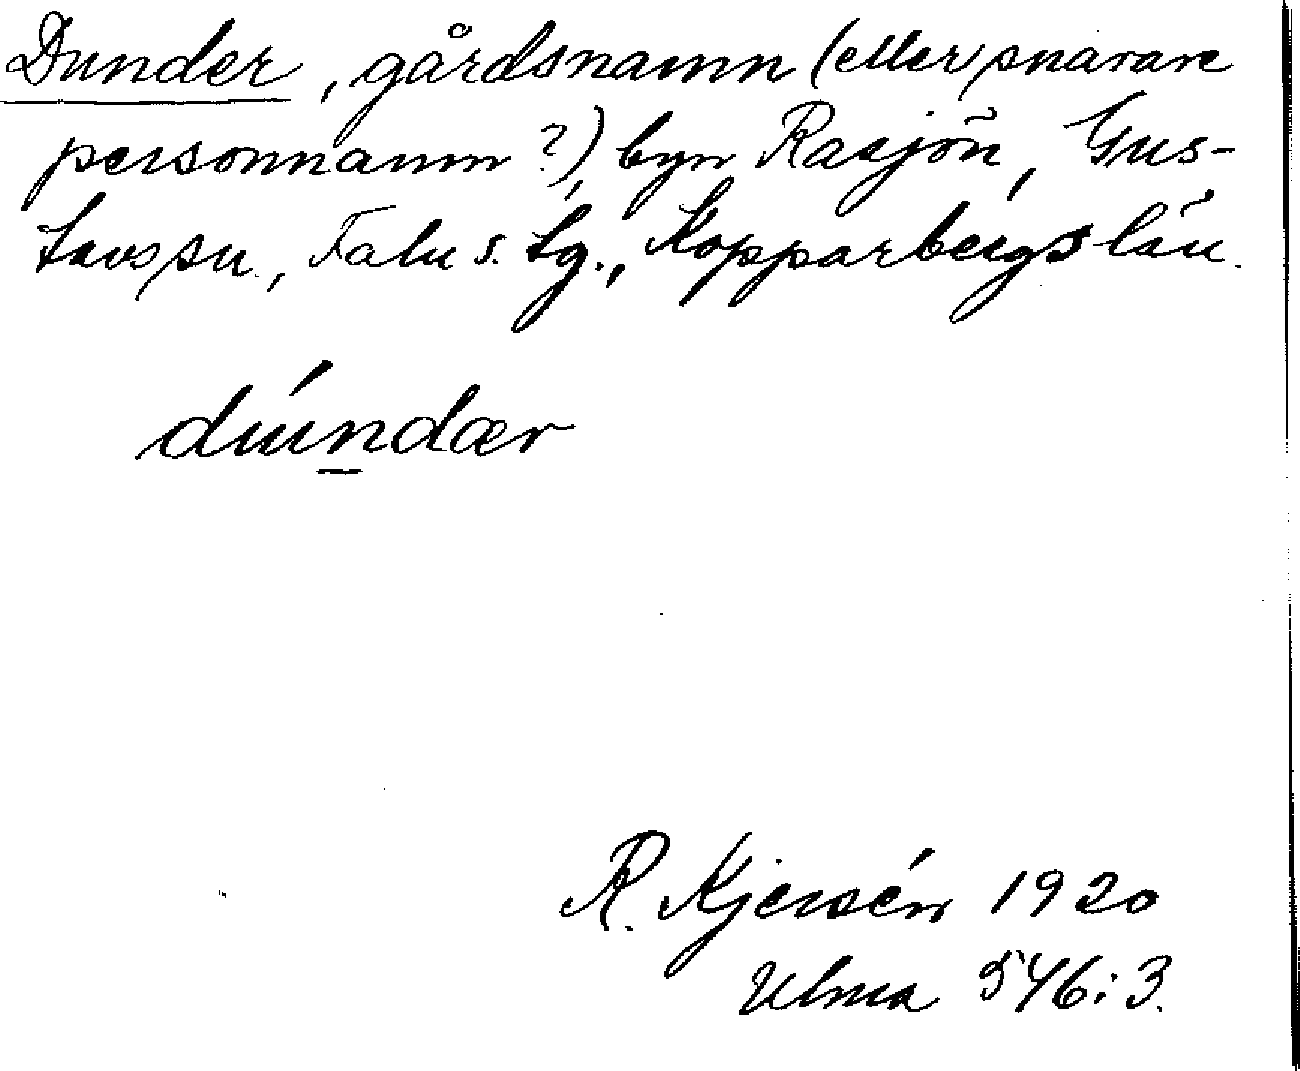 Dunder, gårdsnamn (eller snarare
personnamn?), byn Rasjön, Gus-
tavs sn., Falu s. tg., Kopparbergs län.
dúndær
R. Kjersén 1920
Ulma 546:3.